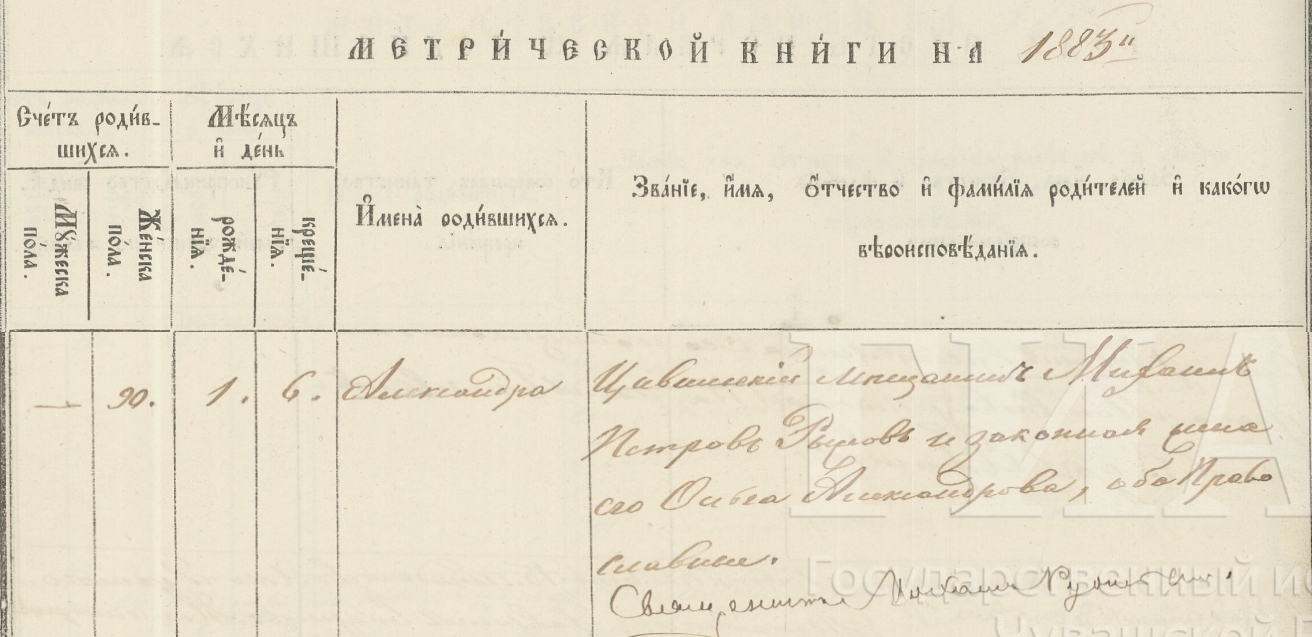 МЕТРИ́ЧЕСКОЙ КНИ́ГИ НА 1883 г
Сче́тъ роди́в-
шихся.
Мѣ́сяцъ
и де́нь
Имена̀ роди́вшихся.
Зва́нїе, и́мя, ѻ́тчество и фами́лїѧ роди́телей и како́гѡ
вѣроисповѣ́данїѧ.
Мꙋ́жеска
пола.
Же́нска
пола.
рожде́-
нїѧ.
креще́-
нїѧ.
— 90. 1. 6. Александра
Цивильскій мѣщанинъ Михаилъ
Петровъ и законная жена
его Ольга Александрова, оба Право
славные.
Священникъ Михаилъ
ГИА
Государственный и
Чувашской